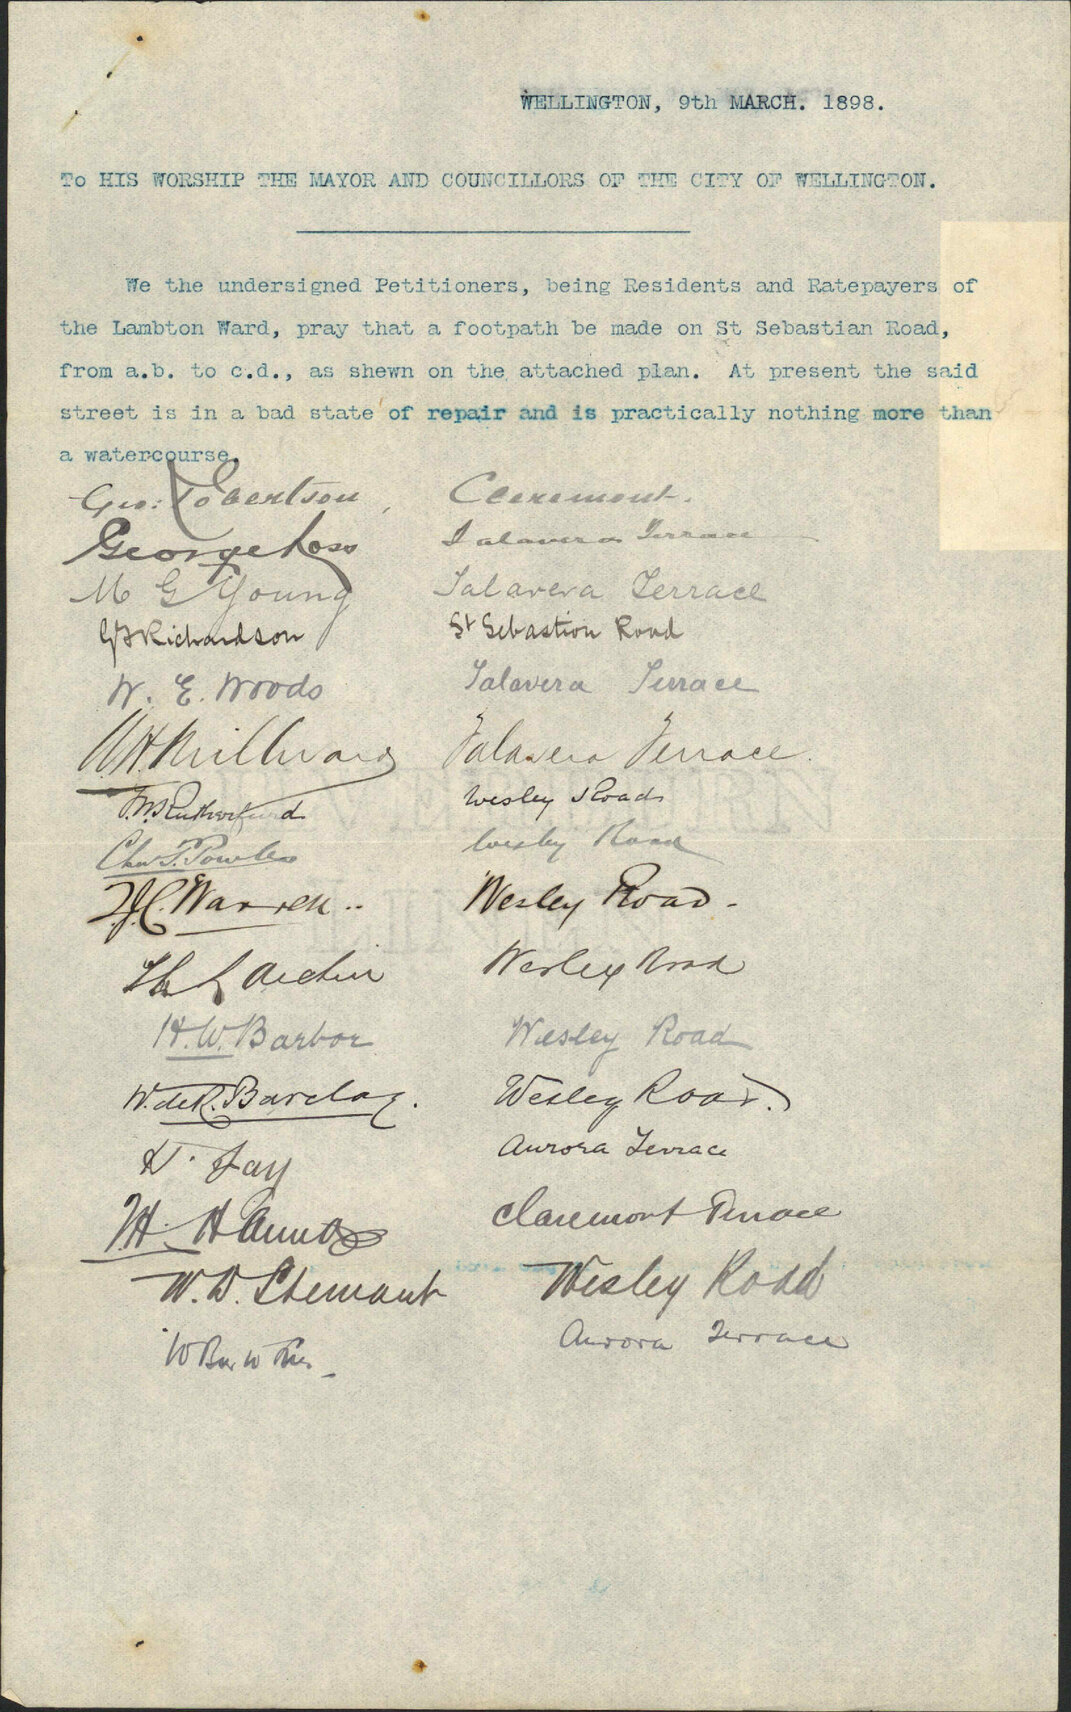 WELLINGTON, 9th MARCH. 1898.
To HIS WORSHIP THE MAYOR AND COUNCILLORS OF THE CITY OF WELLINGTON.
We the undersigned Petitioners, being Residents and Ratepayers of
the Lambton Ward, pray that a footpath be made on St Sebastian Road,
from a.b. to c.d., as shewn on the attached plan. At present the said
street is in a bad state of repair and is practically nothing more than
a watercourse.
Geo: Robertson, Claremont.
George Ross Talavera Terrace
M G Young Talavera Terrace
Richardson St Sebastion Road
W. E. Woods Talavera Terrace
W. H. Millward Talavera Terrace.
Rutherfurd Wesley Road
Chas T. Powles Wesley Road
Warren.. Wesley Road-
Wesley Road
H. W. Barbor Wesley Road
W. de R. Barclay. Wesley Road.
Jay Aurora Terrace
Claremont Terrace
W. D. Wesley Road
W Aurora Terrace